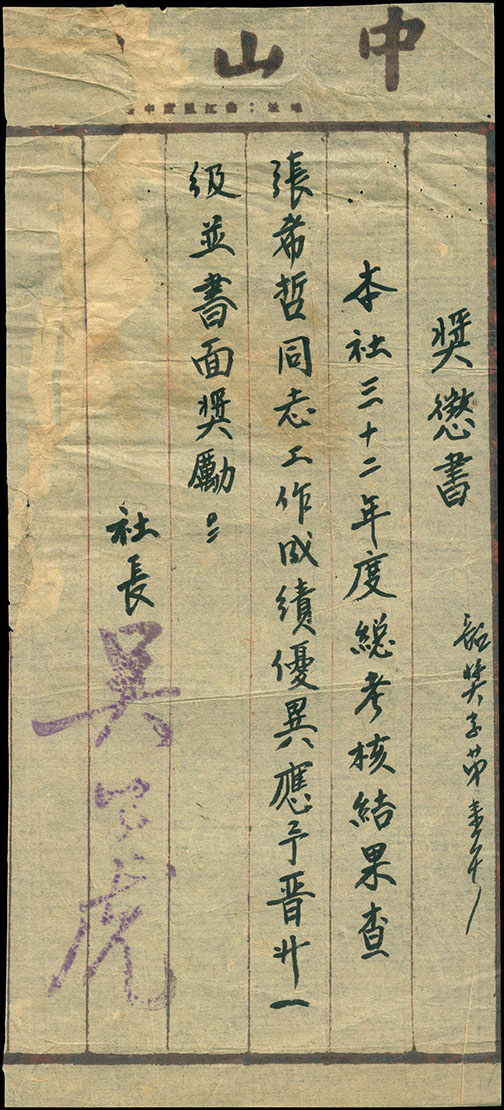 中山
址：曲江風度中
獎懲書
韶獎字第壹号
本社三十二年度總考核結果查
張希哲同志工作成績優異應予晋升一
級並書面獎勵
社長 吳公虎